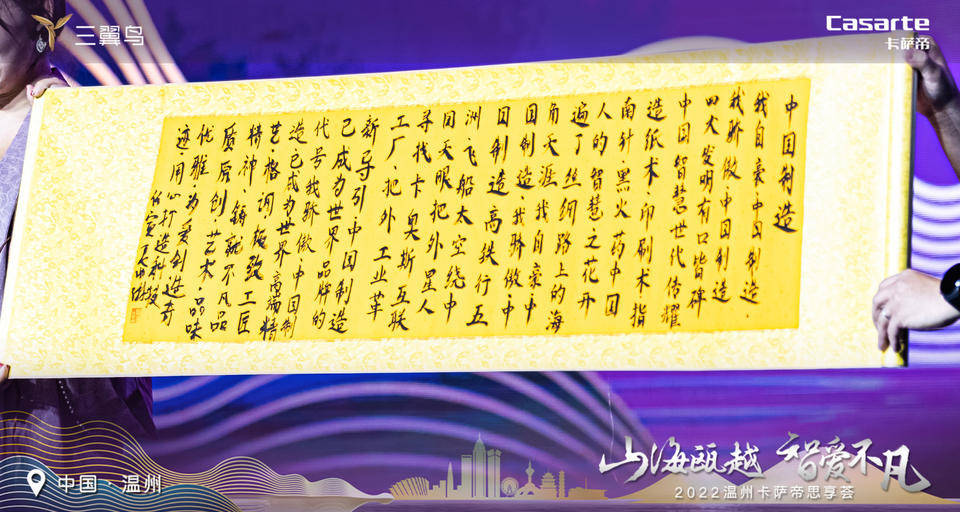 三翼鸟
Casarte
卡萨帝
中国制造
我自豪·中国制造·
我骄傲·中国制造
四大发明有口皆碑
中国智慧世代传耀
造纸术·印刷术·指
南针·黑火药中国
人的智慧之花开
遍了丝绸路上的海
角天涯·我自豪中
国制造·我骄傲·中
国制造高铁行五
洲飞船太空绕中
国天眼把外星人
寻找卡奥斯互联
工厂·把外工业革
新·导引·中国制造
已成为世界品牌的
代号我骄傲·中国制
造已成为世界高端精
艺·格调极致工匠
精神铸就不凡品
质原创·艺术·品味
优雅·为爱创造奇
迹·用心打造科技
中国·温州
山海瓯越 智爱不凡
2022温州卡萨帝思享荟